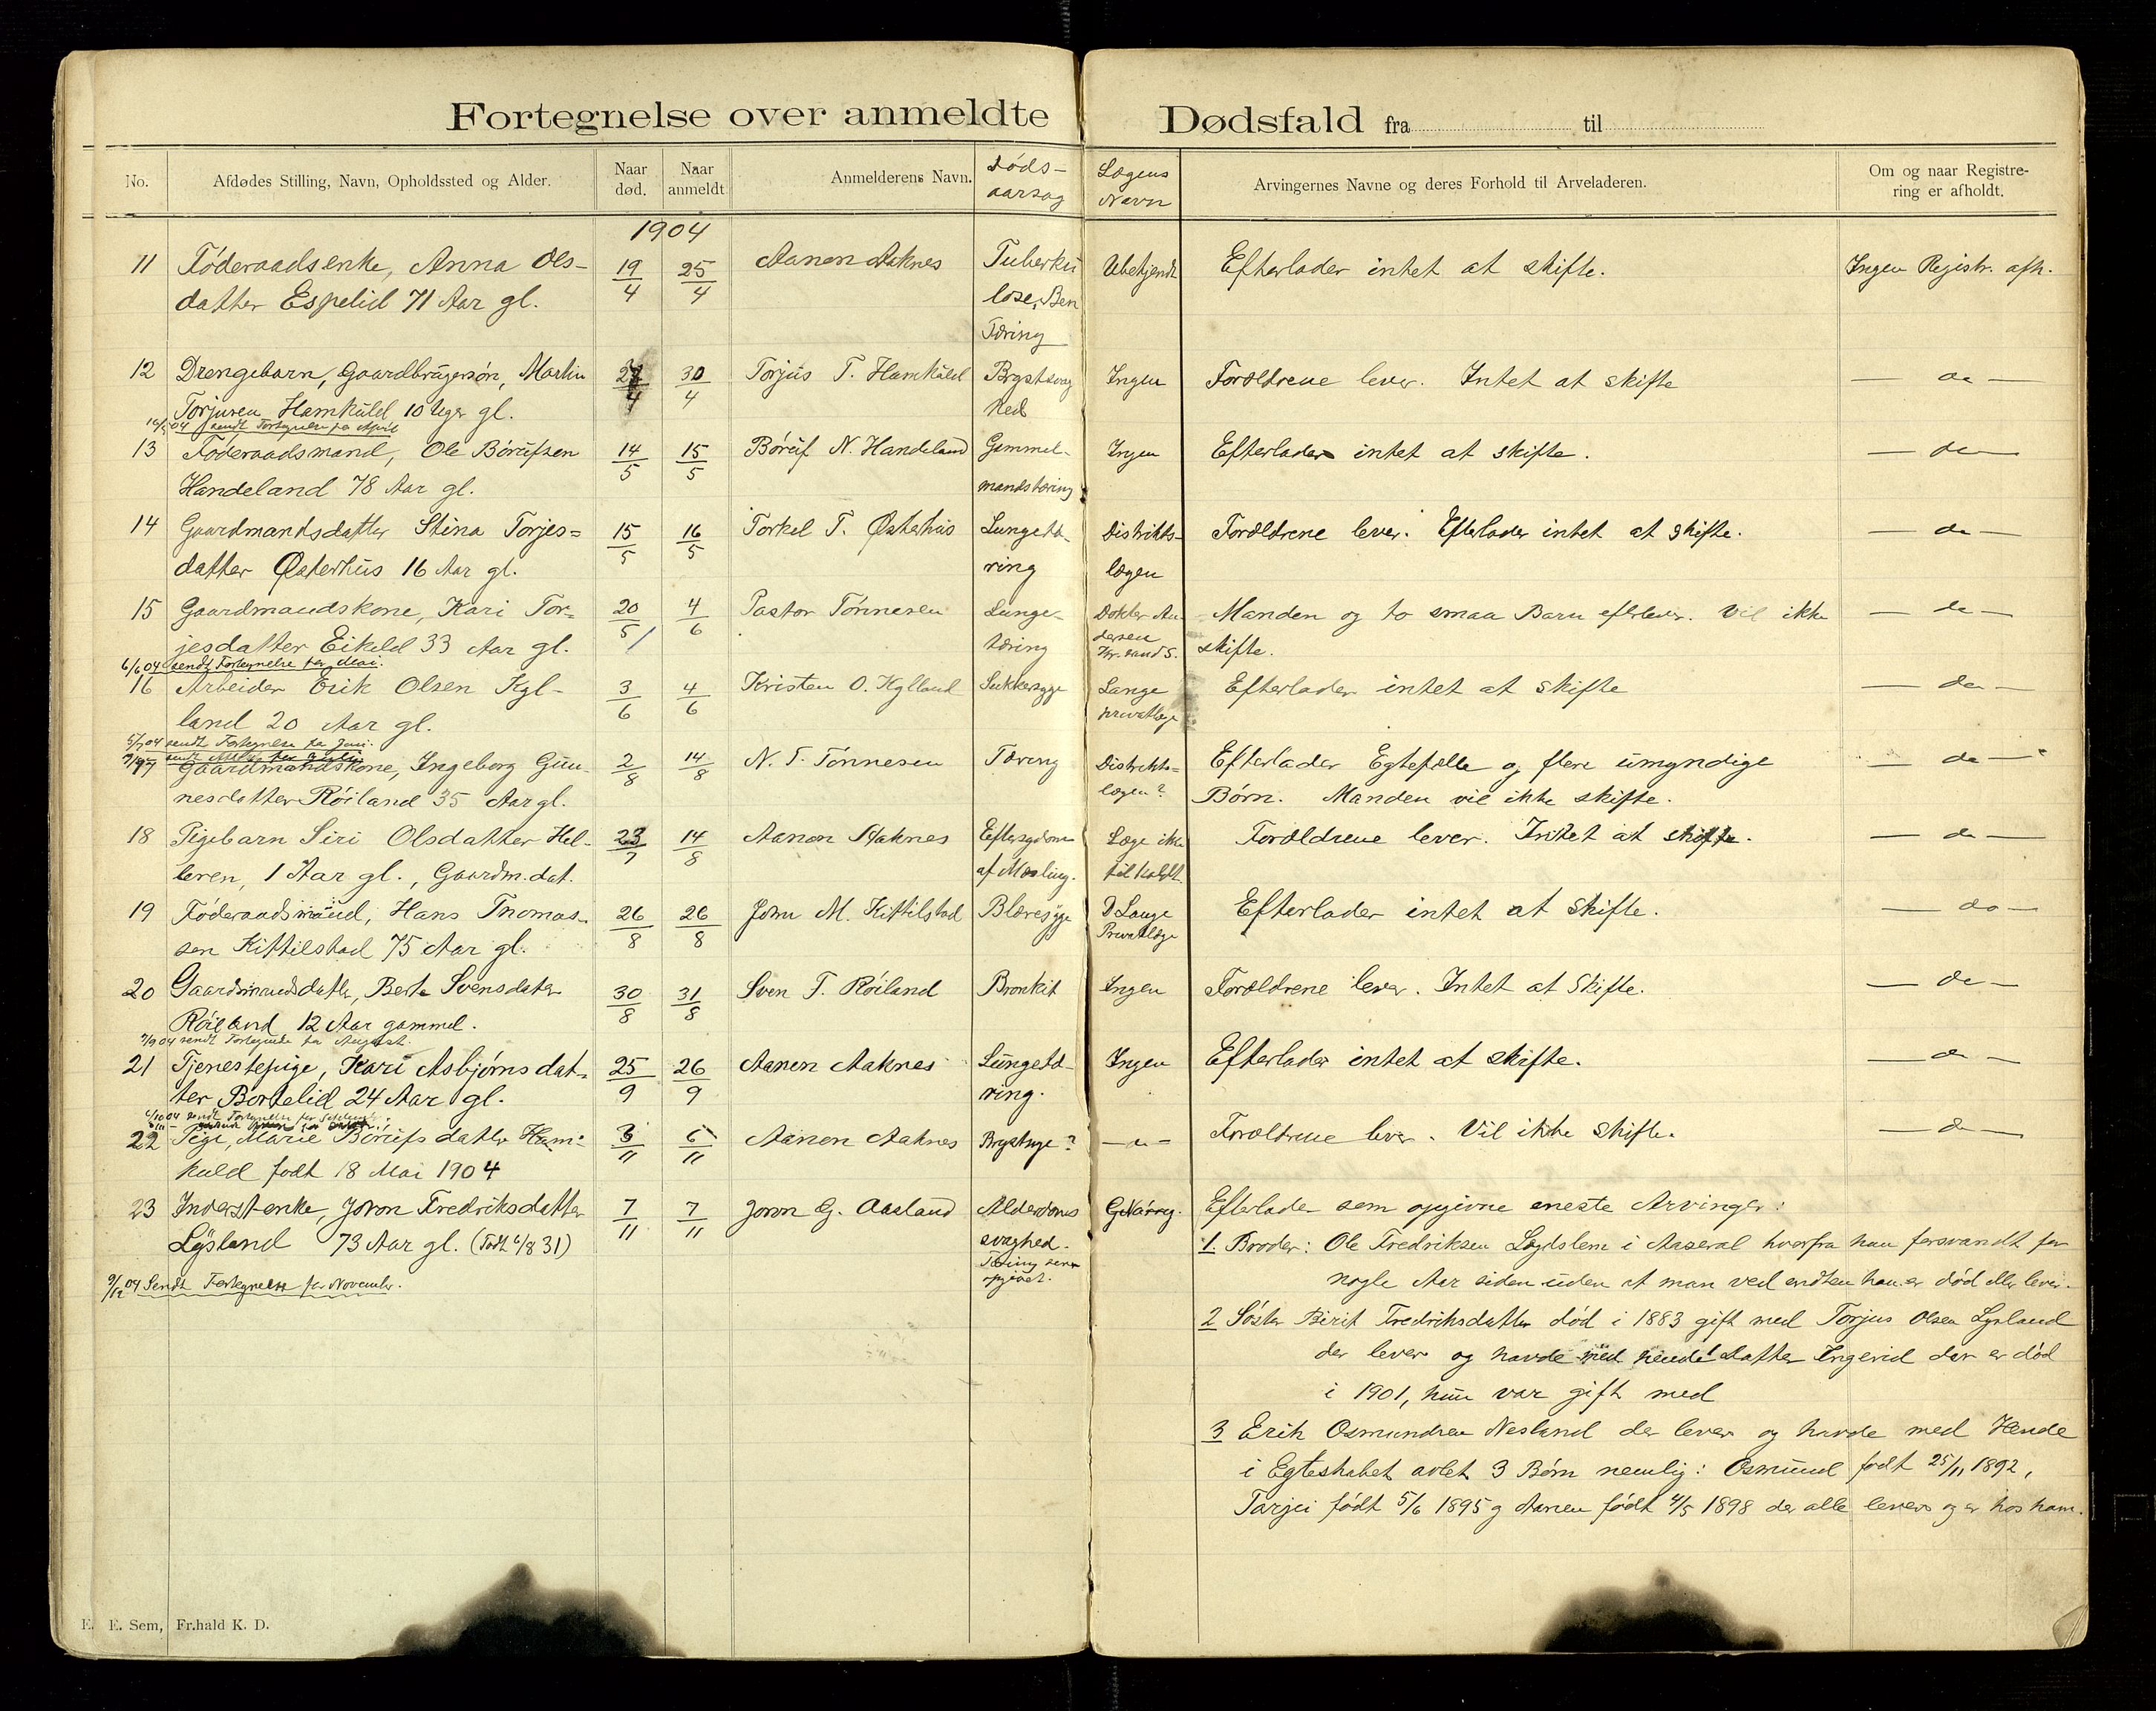 Fortegnelse over anmeldte Dødsfald fra til
No. Afdødes Stilling, Navn, Opholdssted og Alder. Naar død. Naar anmeldt Anmelderens Navn. Døds- aarsag Lægens Navn Arvingernes Navne og deres Forhold til Arveladeren. Om og naar Registre- ring er afholdt.
1904
11 Føderaadsenke, Anna Ols- 19/4 25/4 Aanen Aaknes Tuberku Ubekjendt Efterlader intet at skifte. Ingen Registr. afh.
datter Espelid 71 Aar gl. løse, Ben
Tæring
12 Drengebarn, Gaardbrugersøn, Martin 30/4 Torjus T. Hamkuld Brystsvag Ingen Forældrene lever. Intet at skifte — do —
Torjusen Hamkuld 10 Uger gl. hed
sendt Fortegnelse for April
13 Føderaadsmand, Ole Børufsen 14/5 15/5 Børuf N. Handeland Gammel- Ingen Efterlader intet at skifte. — do —
Handeland 78 Aar gl. mandstæring
14 Gaardmandsdatter Stina Torjes= 15/5 16/5 Torkel T. Østerhus Lungetæ- Distrikts- Forældrene lever. Efterlader intet at skifte. — do —
datter Østerhus 16 Aar gl. ring lægen
15 Gaardmandskone, Kari Tor= 20/5 4/6 Pastor Tønnesen Lunge- Dokter An- Manden og to smaa Barn efterlever. Vil ikke — do —
jesdatter Eikeld 33 Aar gl. tæring dersen Kr.sand S. skifte.
6/6 04 sendt Fortegnelse for Mai.
16 Arbeider Erik Olsen Kyl- 3/6 4/6 Kristen O. Kylland Sukkersyge Lange Efterlader intet at skifte — do —
land 20 Aar gl. privatlæge
5/7 04 sendt Fortegnelse for Juni.
17 Gaardmandskone, Ingeborg Gun- 2/8 14/8 N. T. Tønnesen Tæring Distrikts= Efterlader Egtefælle og flere umyndige — do —
nesdatter Røiland 35 Aar gl. lægen? Børn. Manden vil ikke skifte.
18 Pigebarn Siri Olsdatter Hel- 23/7 14/8 Aanon Aaknes Eftersygdom Læge ikke Forældrene lever. Intet at skifte. — do —
leren, 1 Aar gl., Gaardm.dat. af Mæsling. tilkaldt.
19 Føderaadsmand, Hans Thomas- 26/8 26/8 John M. Kittilstad Blæresyge D Lange Efterlader intet at skifte. — do —
sen Kittilstad 75 Aar gl. Privatlæge
20 Gaardmandsdatter, Berte Svensdatter 30/8 31/8 Sven T. Røiland Bronkit Ingen Forældrene lever. Intet at Skifte. — do —
Røiland 12 Aar gammel.
7/9 04 sendt Fortegnelse for August.
21 Tjenestepige, Kari Asbjørns dat- 25/9 26/9 Aanen Aaknes Lungetæ- Ingen Efterlader intet at skifte. — do —
ter Bortelid 24 Aar gl. ring.
sendt Fortegnelse for September
22 Pige, Marie Børufs datter Ham- 3/11 6/11 Aanen Aaknes Brystsyge? — do — Forældrene lever. Vil ikke skifte. — do —
kuld født 18 Mai 1904
23 Inderstenke, Joron Fredriksdatter 7/11 7/11 Joron G. Aasland Alderdoms Efterlader som opgivne eneste Arvinger:
Lysland 73 Aar gl. (Født 6/8 31) svaghed. 1. Broder: Ole Fredriksen Løgdslem i Aaseral hvorfra han forsvandt for
Tæring som opgivet. nogle Aar siden uden at man ved enten han er død eller lever.
9/12 04 Sendt Fortegnelse for November.
2 Søster Birit Fredriksdatter død i 1883 gift med Torjus Olsen Lysland
der lever og havde med hende 1 Datter Ingerid der er død
i 1901, hun var gift med
3 Erik Osmundsen Nesland der lever og havde med Hende
i Egteskabet avlet 3 Børn nemlig: Osmund født 25/11 1892,
Tarjei født 5/6 1895 og Aanen født 4/5 1898 der alle lever og er hos ham.
E. E. Sem, Fr.hald K. D.